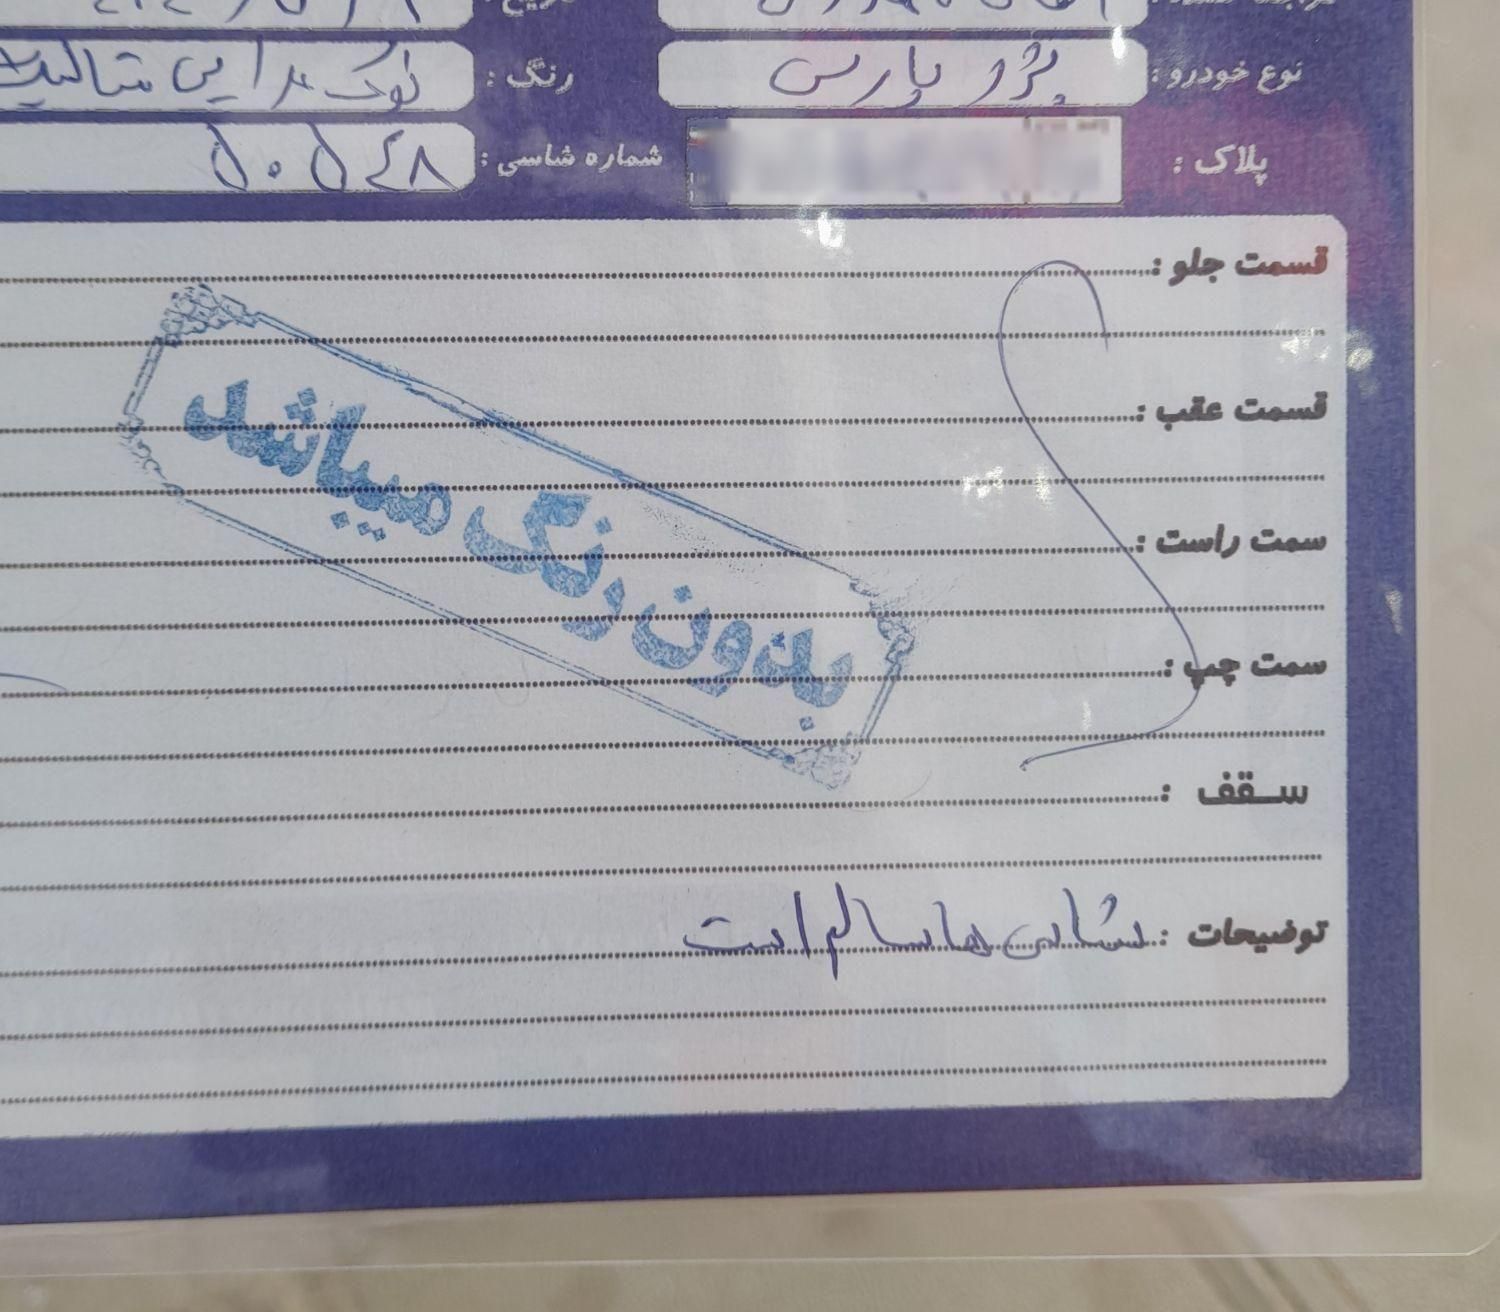 مراجعه کننده: تاریخ:
نوع خودرو: پژو پارس رنگ: نوک مدادی متالیک
پلاک: شماره شاسی: ۵۰۵۴۸
قسمت جلو:
قسمت عقب:
سمت راست:
سمت چپ:
بدون رنگ میباشد
سقف:
توضیحات: شاسی ها سالم است